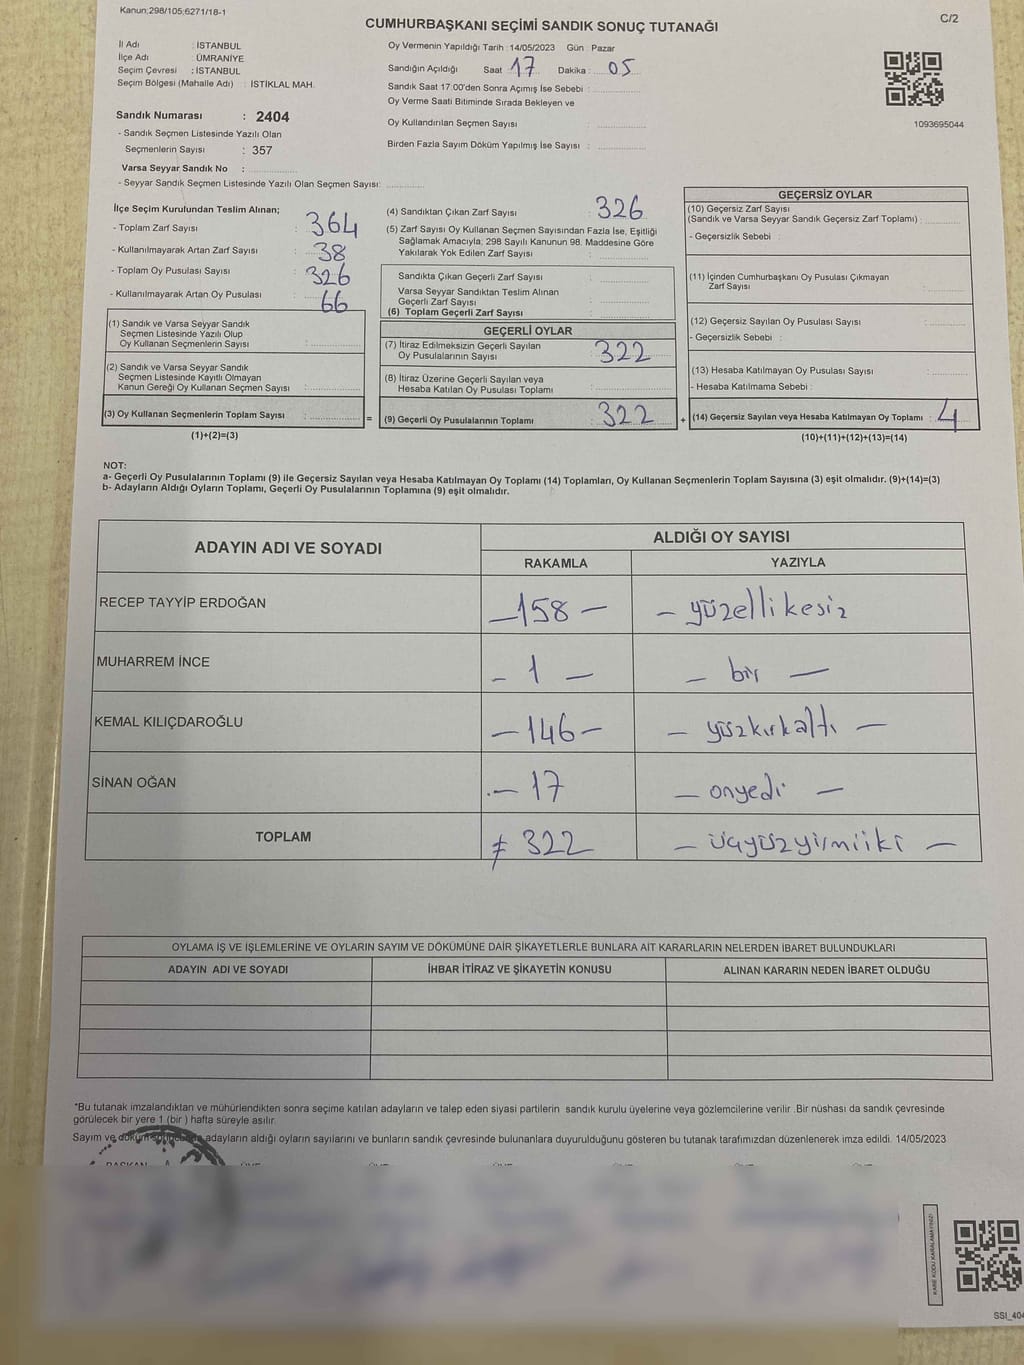 Kanun;298/105;6271/18-1
C/2
CUMHURBAŞKANI SEÇİMİ SANDIK SONUÇ TUTANAĞI
İl Adı : İSTANBUL
İlçe Adı : ÜMRANİYE
Seçim Çevresi : İSTANBUL
Seçim Bölgesi (Mahalle Adı) : İSTİKLAL MAH.
Oy Vermenin Yapıldığı Tarih : 14/05/2023 Gün : Pazar
Sandığın Açıldığı Saat : 17 Dakika : 05
Sandık Saat 17:00'den Sonra Açımış İse Sebebi :
Oy Verme Saati Bitiminde Sırada Bekleyen ve
Oy Kullandırılan Seçmen Sayısı :
Birden Fazla Sayım Döküm Yapılmış İse Sayısı :
1093695044
Sandık Numarası : 2404
- Sandık Seçmen Listesinde Yazılı Olan
Seçmenlerin Sayısı : 357
Varsa Seyyar Sandık No :
- Seyyar Sandık Seçmen Listesinde Yazılı Olan Seçmen Sayısı:
İlçe Seçim Kurulundan Teslim Alınan;
- Toplam Zarf Sayısı : 364
- Kullanılmayarak Artan Zarf Sayısı : 38
- Toplam Oy Pusulası Sayısı : 326
- Kullanılmayarak Artan Oy Pusulası : 66
(1) Sandık ve Varsa Seyyar Sandık
Seçmen Listesinde Yazılı Olup
Oy Kullanan Seçmenlerin Sayısı :
(2) Sandık ve Varsa Seyyar Sandık
Seçmen Listesinde Kayıtlı Olmayan
Kanun Gereği Oy Kullanan Seçmen Sayısı :
(3) Oy Kullanan Seçmenlerin Toplam Sayısı :
(1)+(2)=(3)
(4) Sandıktan Çıkan Zarf Sayısı : 326
(5) Zarf Sayısı Oy Kullanan Seçmen Sayısından Fazla İse, Eşitliği
Sağlamak Amacıyla; 298 Sayılı Kanunun 98. Maddesine Göre
Yakılarak Yok Edilen Zarf Sayısı :
Sandıkta Çıkan Geçerli Zarf Sayısı :
Varsa Seyyar Sandıktan Teslim Alınan
Geçerli Zarf Sayısı :
(6) Toplam Geçerli Zarf Sayısı :
GEÇERLİ OYLAR
(7) İtiraz Edilmeksizin Geçerli Sayılan
Oy Pusulalarının Sayısı : 322
(8) İtiraz Üzerine Geçerli Sayılan veya
Hesaba Katılan Oy Pusulası Toplamı :
= (9) Geçerli Oy Pusulalarının Toplamı : 322
GEÇERSİZ OYLAR
(10) Geçersiz Zarf Sayısı
(Sandık ve Varsa Seyyar Sandık Geçersiz Zarf Toplamı) :
- Geçersizlik Sebebi :
(11) İçinden Cumhurbaşkanı Oy Pusulası Çıkmayan
Zarf Sayısı :
(12) Geçersiz Sayılan Oy Pusulası Sayısı :
- Geçersizlik Sebebi :
(13) Hesaba Katılmayan Oy Pusulası Sayısı :
- Hesaba Katılmama Sebebi :
+ (14) Geçersiz Sayılan veya Hesaba Katılmayan Oy Toplamı : 4
(10)+(11)+(12)+(13)=(14)
NOT:
a- Geçerli Oy Pusulalarının Toplamı (9) ile Geçersiz Sayılan veya Hesaba Katılmayan Oy Toplamı (14) Toplamları, Oy Kullanan Seçmenlerin Toplam Sayısına (3) eşit olmalıdır. (9)+(14)=(3)
b- Adayların Aldığı Oyların Toplamı, Geçerli Oy Pusulalarının Toplamına (9) eşit olmalıdır.
ADAYIN ADI VE SOYADI
ALDIĞI OY SAYISI
RAKAMLA YAZIYLA
RECEP TAYYİP ERDOĞAN - 158 - - yüzellikesiz
MUHARREM İNCE - 1 - - bir -
KEMAL KILIÇDAROĞLU - 146 - - yüzkırkaltı -
SİNAN OĞAN - 17 - onyedi -
TOPLAM ≠ 322 - üçyüzyirmiiki -
OYLAMA İŞ VE İŞLEMLERİNE VE OYLARIN SAYIM VE DÖKÜMÜNE DAİR ŞİKAYETLERLE BUNLARA AİT KARARLARIN NELERDEN İBARET BULUNDUKLARI
ADAYIN ADI VE SOYADI İHBAR İTİRAZ VE ŞİKAYETİN KONUSU ALINAN KARARIN NEDEN İBARET OLDUĞU
*Bu tutanak imzalandıktan ve mühürlendikten sonra seçime katılan adayların ve talep eden siyasi partilerin sandık kurulu üyelerine veya gözlemcilerine verilir .Bir nüshası da sandık çevresinde
görülecek bir yere 1 (bir ) hafta süreyle asılır.
Sayım ve döküm sonucunda adayların aldığı oyların sayılarını ve bunların sandık çevresinde bulunanlara duyurulduğunu gösteren bu tutanak tarafımızdan düzenlenerek imza edildi. 14/05/2023
BAŞKAN
KARE KODU KARALAMAYINIZ!
SSI_404